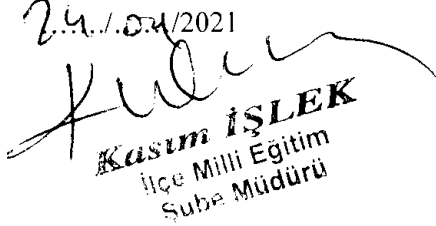 24/04/2021
Kasım İŞLEK
İlçe Milli Eğitim
Şube Müdürü